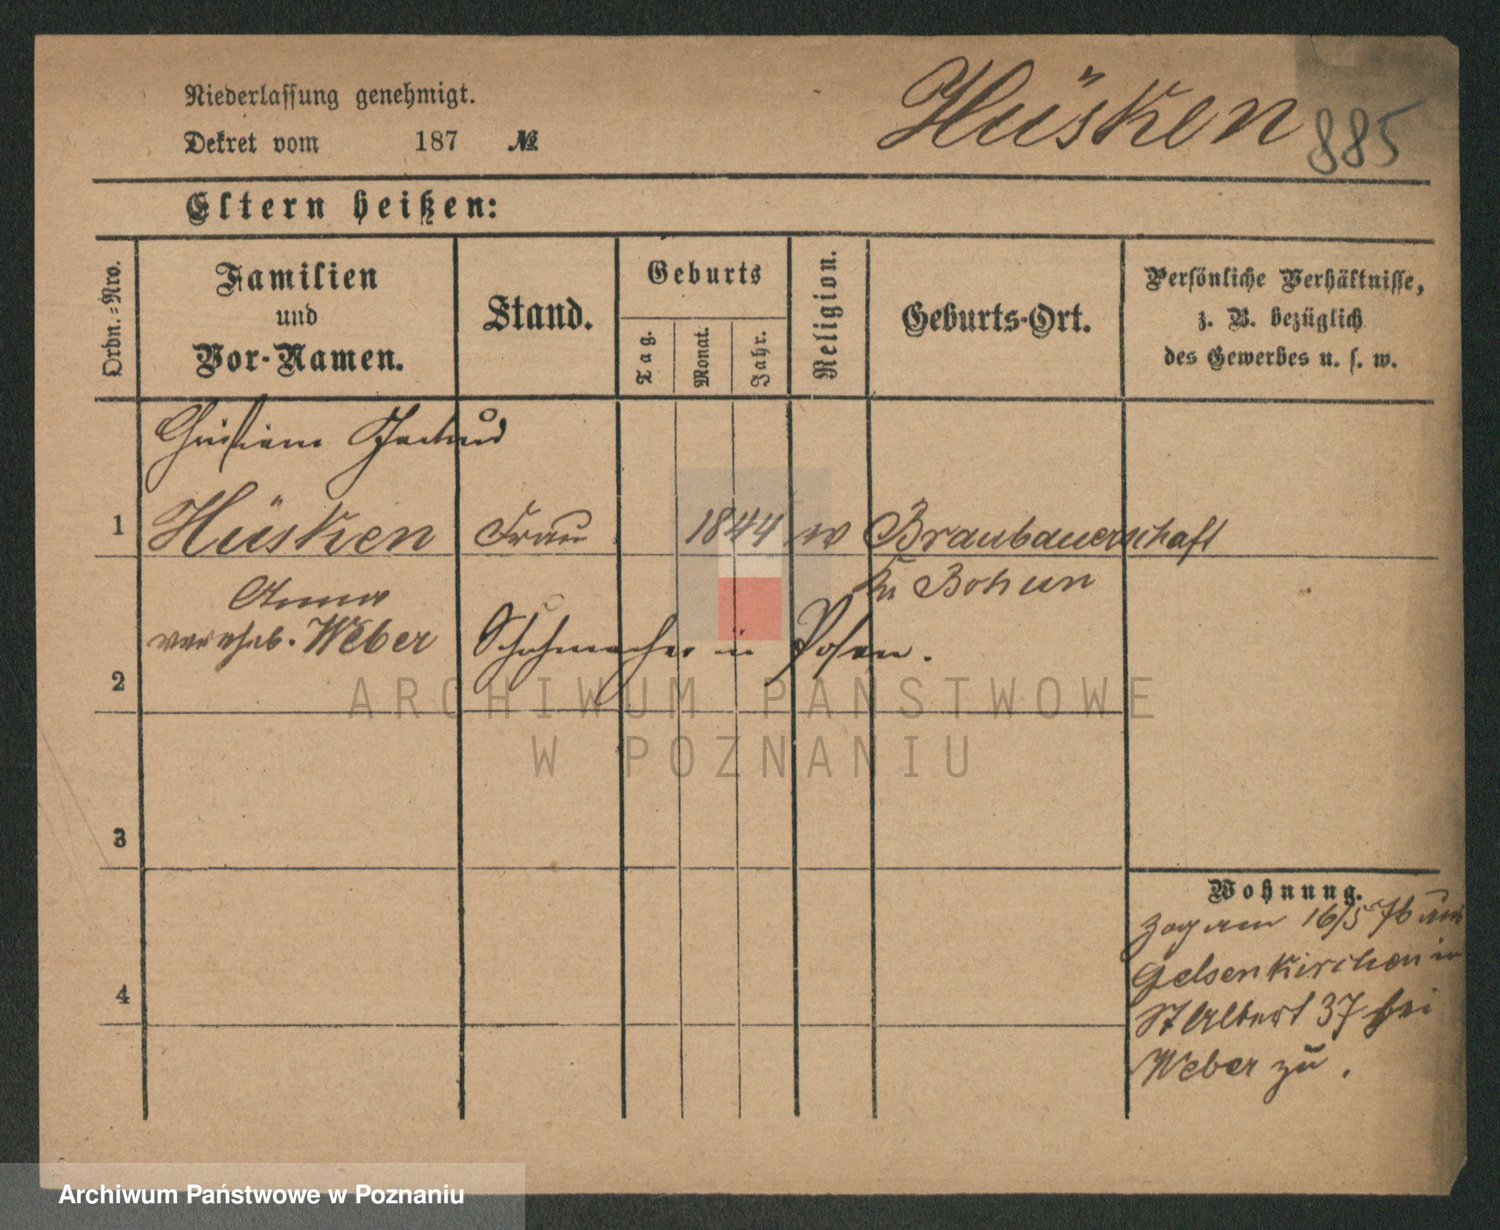 Niederlassung genehmigt.
Dekret vom 187 №
Hüsken 885
Eltern heißen:
Ordn.=Nro.
Familien
und
Vor-Namen.
Stand.
Geburts
Tag.
Monat.
Jahr.
Religion.
Geburts-Ort.
Persönliche Verhältnisse,
z. B. bezüglich
des Gewerbes u. s. w.
1 Hüsken Frau 1844 w Braubauerschaft
Anna
verehel. Weber
Kr Bohum
Schuhmacher in Posen.
2
3
4
Wohnung.
Zog am 16/5 76 aus
Gelsenkirchen in
St Albert 37 bei
Weber zu.
ARCHIWUM PAŃSTWOWE
W POZNANIU
Archiwum Państwowe w Poznaniu